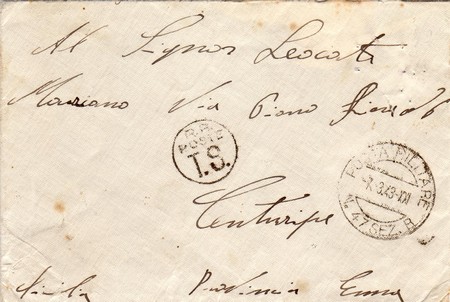 Al Signor Leocata
Mariano Via Piano
R.R.
POSTE
T.S.
POSTA MILITARE
3.43-XXI
N. 47 SEZ. B
Centuripe
Sicilia Provincia Enna